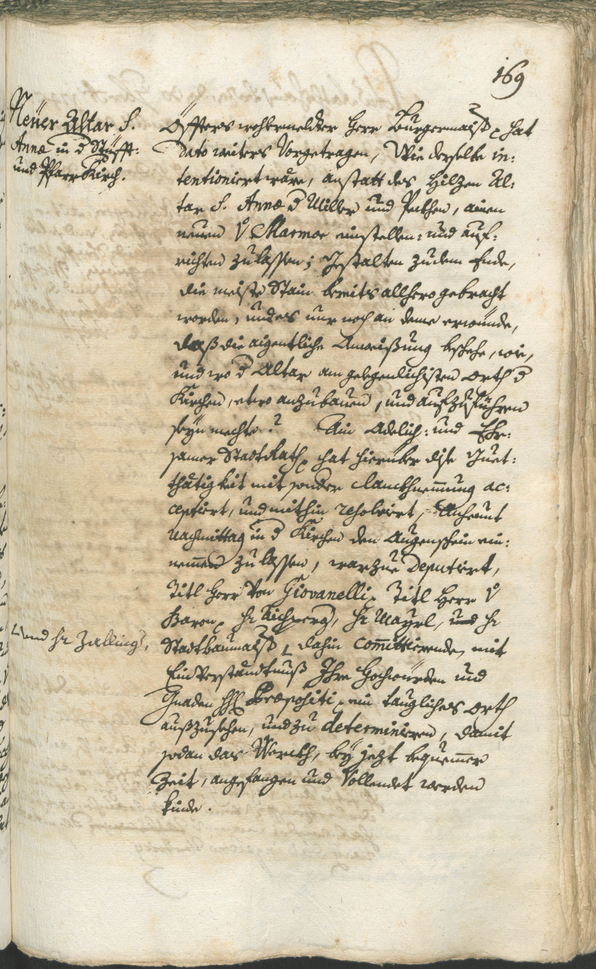 169
Neüer Altar S.
Annæ in d Stüfft-
und Pfarr Kirch.
Öffters wohlermelter Herr Burgermaist. hat
dato weiters Vorgetragen, Wie derselbe in-
tentioniert wäre, anstatt des hilzen Al-
tar S. Annæ d Müller und Pekhen, ainen
neuen V Marmor einstellen- und auf-
richten zulassen; Gestalten zu dem Ende,
die meiste Stain bereits allhero gebracht
worden, und es nur noch an deme erwünde,
daß die aigentliche Anweisung beschehe, wie,
und wo d Altar am gelegenlichisten Orth d
Kirchen, etwo anzubauen, und aufzuführen
seyn mechte? Ain Adelich- und Ehr-
samer Stadt Rath, hat hierüber dise Guet-
thätigkeit mit sonder Dankhnemmung ac-
ceptirt, und mithin resolviert, Anheunt
nachmittag in d Kirchen den Augenschein ein-
nemmen zulassen, warzue Deputiert,
Titl Herr Von Giovanelli, Titl Herr V
Hr Mayrl, und Hr
und Hr Zallinger,
Stadtbaumaist dahin committierende, mit
Einverständtnuß Ihro Hochwürden und
Gnaden Præpositi, ein taugliches Orth
außzusehen, und zu determinieren, damit
sodan das Werkh, bey jezt bequemmer
Zeit, angefangen und Vollendet werden
kunde.